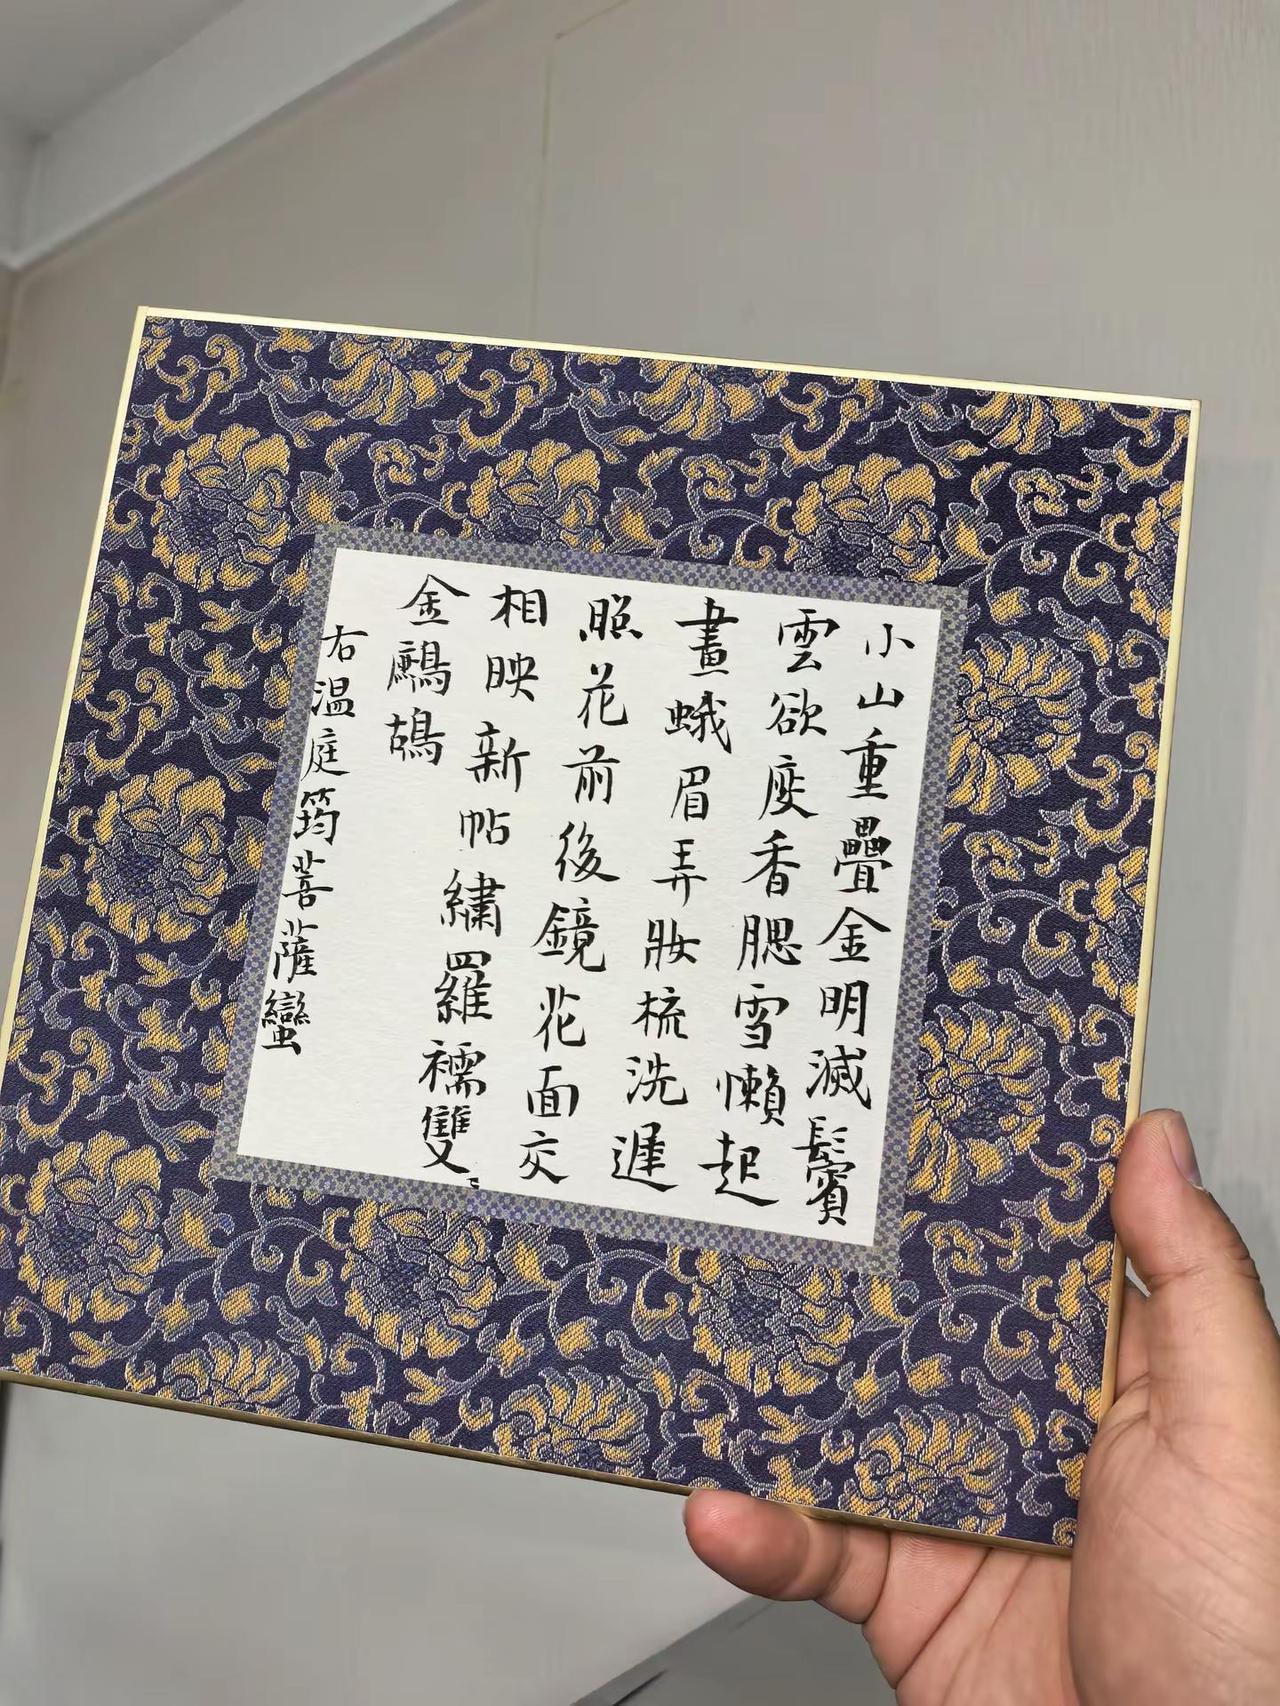 小山重疊金明滅鬢
雲欲度香腮雪懶起
畫蛾眉弄妝梳洗遲
照花前後鏡花面交
相映新帖繡羅襦雙〻
金鷓鴣
右温庭筠菩薩蠻